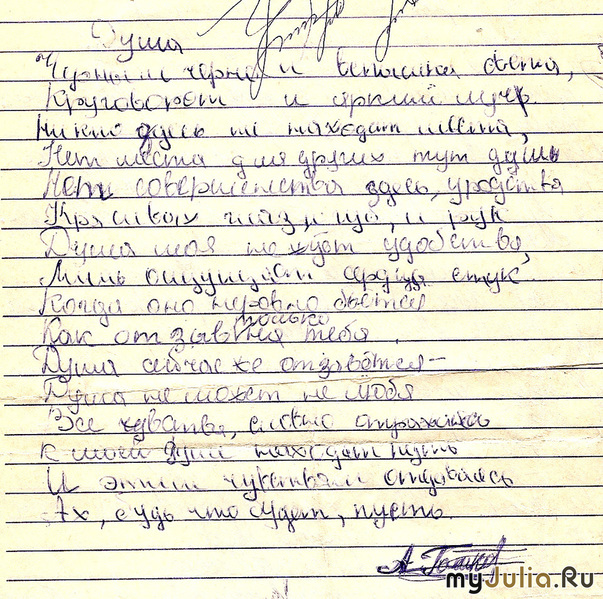 Душа
Чернильная черно и света,
Круговорот и яркий луч.
Никто здесь не находит места,
Нет места для других тут душ
Нет совершенства здесь, уродства
Красивых глаз, и рук
Душа моя не удобства,
Лишь ощущает сердца стук
Когда оно неровно бьется
Как отзыв только на тебя
Душа сейчас же отзовётся—
Душа не может не любя
Все чувства, словно отражаясь
К моей душе находят путь
И этим чувствам отдаваясь
Ах, будь что будет, пусть.
myJulia.Ru